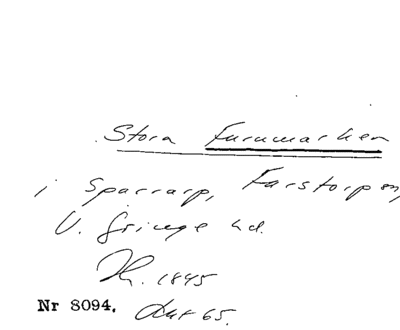 Stora Furumarken
i Sparrarp, Farstorp sn,
V. Göinge hd.
1845
Nr 8094. Akt 65.